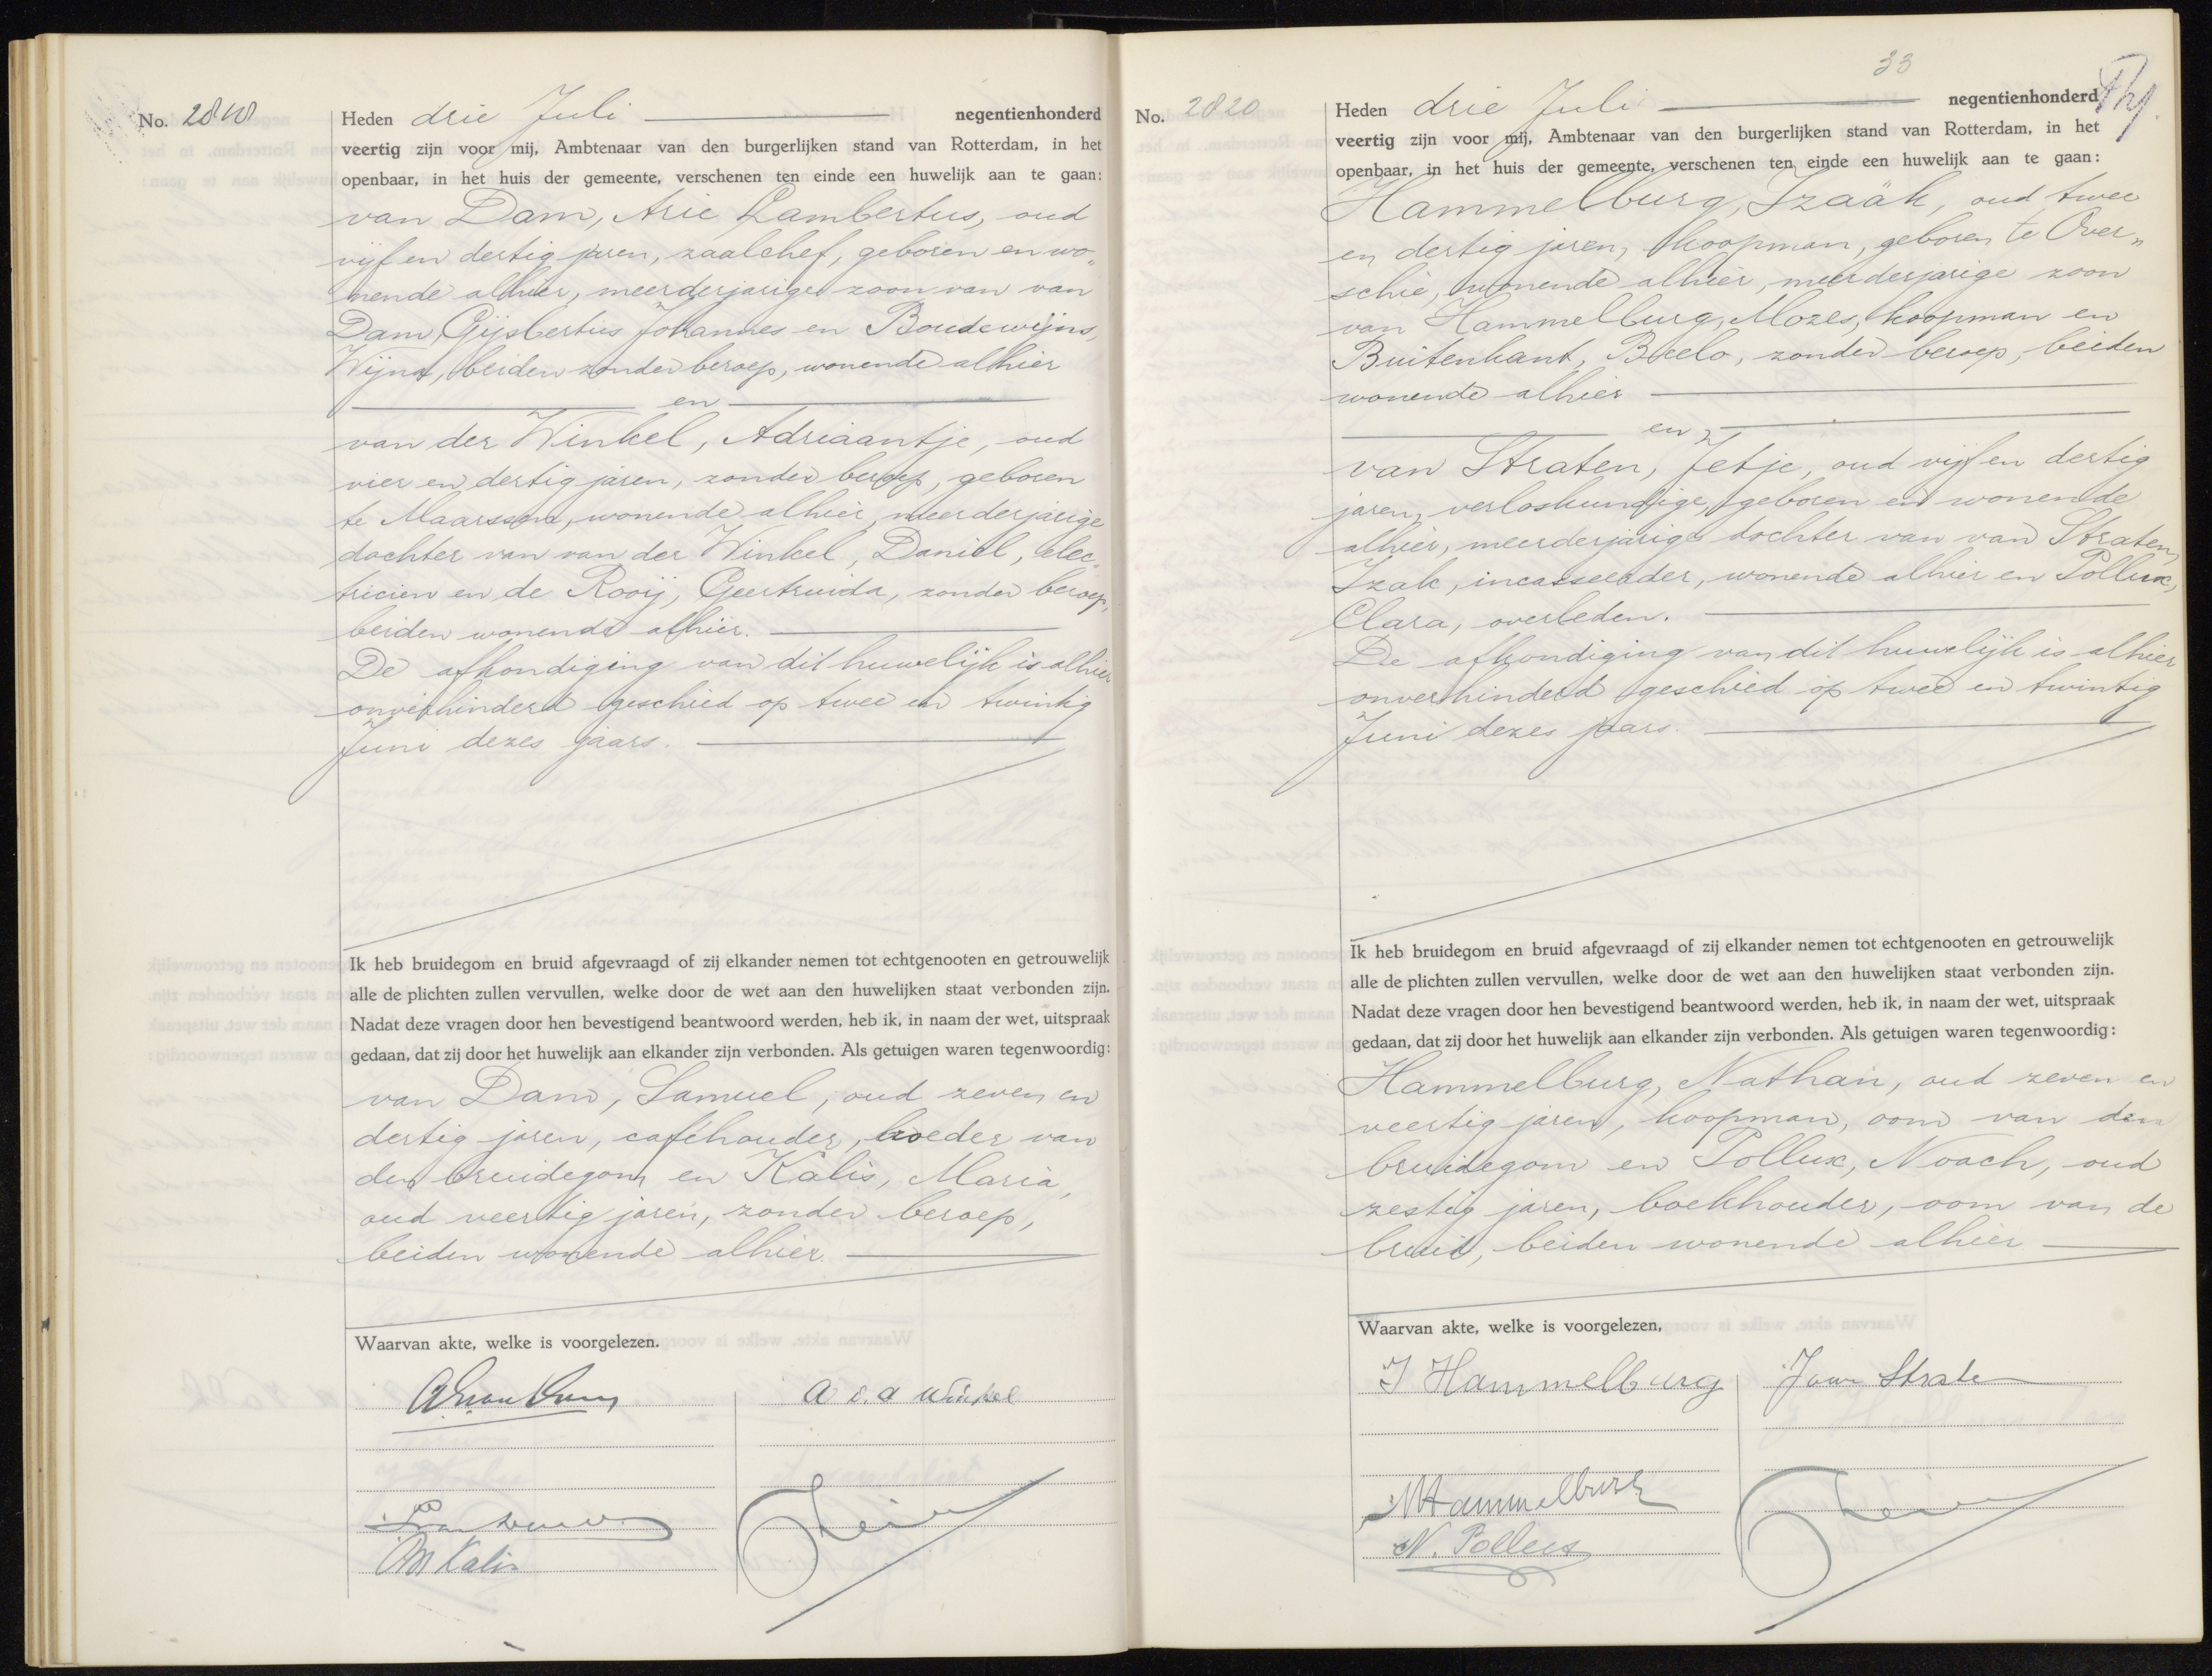 No. 2818
Heden drie Juli negentienhonderd
veertig zijn voor mij, Ambtenaar van den burgerlijken stand van Rotterdam, in het
openbaar, in het huis der gemeente, verschenen ten einde een huwelijk aan te gaan:
van Dam, Arie Lambertus, oud
vijf en dertig jaren, zaalchef, geboren en wo„
nende alhier, meerderjarige zoon van van
Dam, Gijsbertus Johannes en Boudewijns,
Wijna, beiden zonder beroep, wonende alhier
en
van der Winkel, Adriaantje, oud
vier en dertig jaren, zonder beroep, geboren
te Maarssen, wonende alhier, meerderjarige
dochter van van der Winkel, Daniel, elec„
tricien en de Rooij, Geertruida, zonder beroep,
beiden wonende alhier.
De afkondiging van dit huwelijk is alhier
onverhinderd geschied op twee en twintig
Juni dezes jaars.
Ik heb bruidegom en bruid afgevraagd of zij elkander nemen tot echtgenooten en getrouwelijk
alle de plichten zullen vervullen, welke door de wet aan den huwelijken staat verbonden zijn.
Nadat deze vragen door hen bevestigend beantwoord werden, heb ik, in naam der wet, uitspraak
gedaan, dat zij door het huwelijk aan elkander zijn verbonden. Als getuigen waren tegenwoordig:
van Dam, Samuel, oud zeven en
dertig jaren, caféhouder, broeder van
den bruidegom en Kalis, Maria,
oud veertig jaren, zonder beroep,
beiden wonende alhier.
Waarvan akte, welke is voorgelezen.
A v. d Winkel
M Kalis
33
No. 2820
Heden drie Juli negentienhonderd
veertig zijn voor mij, Ambtenaar van den burgerlijken stand van Rotterdam, in het
openbaar, in het huis der gemeente, verschenen ten einde een huwelijk aan te gaan:
Hammelburg, Izaäk, oud twee
en dertig jaren, koopman, geboren te Over„
schie, wonende alhier, meerderjarige zoon
van Hammelburg, Mozes, koopman en
Buitenkant, Beelo, zonder beroep, beiden
wonende alhier
en
van Straten, Jetje, oud vijf en dertig
jaren, verloskundige, geboren en wonende
alhier, meerderjarige dochter van van Straten,
Izak, incasseerder, wonende alhier en Pollux,
Clara, overleden.
De afkondiging van dit huwelijk is alhier
onverhinderd geschied op twee en twintig
Juni dezes jaars.
Ik heb bruidegom en bruid afgevraagd of zij elkander nemen tot echtgenooten en getrouwelijk
alle de plichten zullen vervullen, welke door de wet aan den huwelijken staat verbonden zijn.
Nadat deze vragen door hen bevestigend beantwoord werden, heb ik, in naam der wet, uitspraak
gedaan, dat zij door het huwelijk aan elkander zijn verbonden. Als getuigen waren tegenwoordig:
Hammelburg, Nathan, oud zeven en
veertig jaren, koopman, oom van den
bruidegom en Pollux, Noach, oud
zestig jaren, boekhouder, oom van de
bruid, beiden wonende alhier
Waarvan akte, welke is voorgelezen,
I Hammelburg
J van Straten
N Hammelburg
N. Pollux